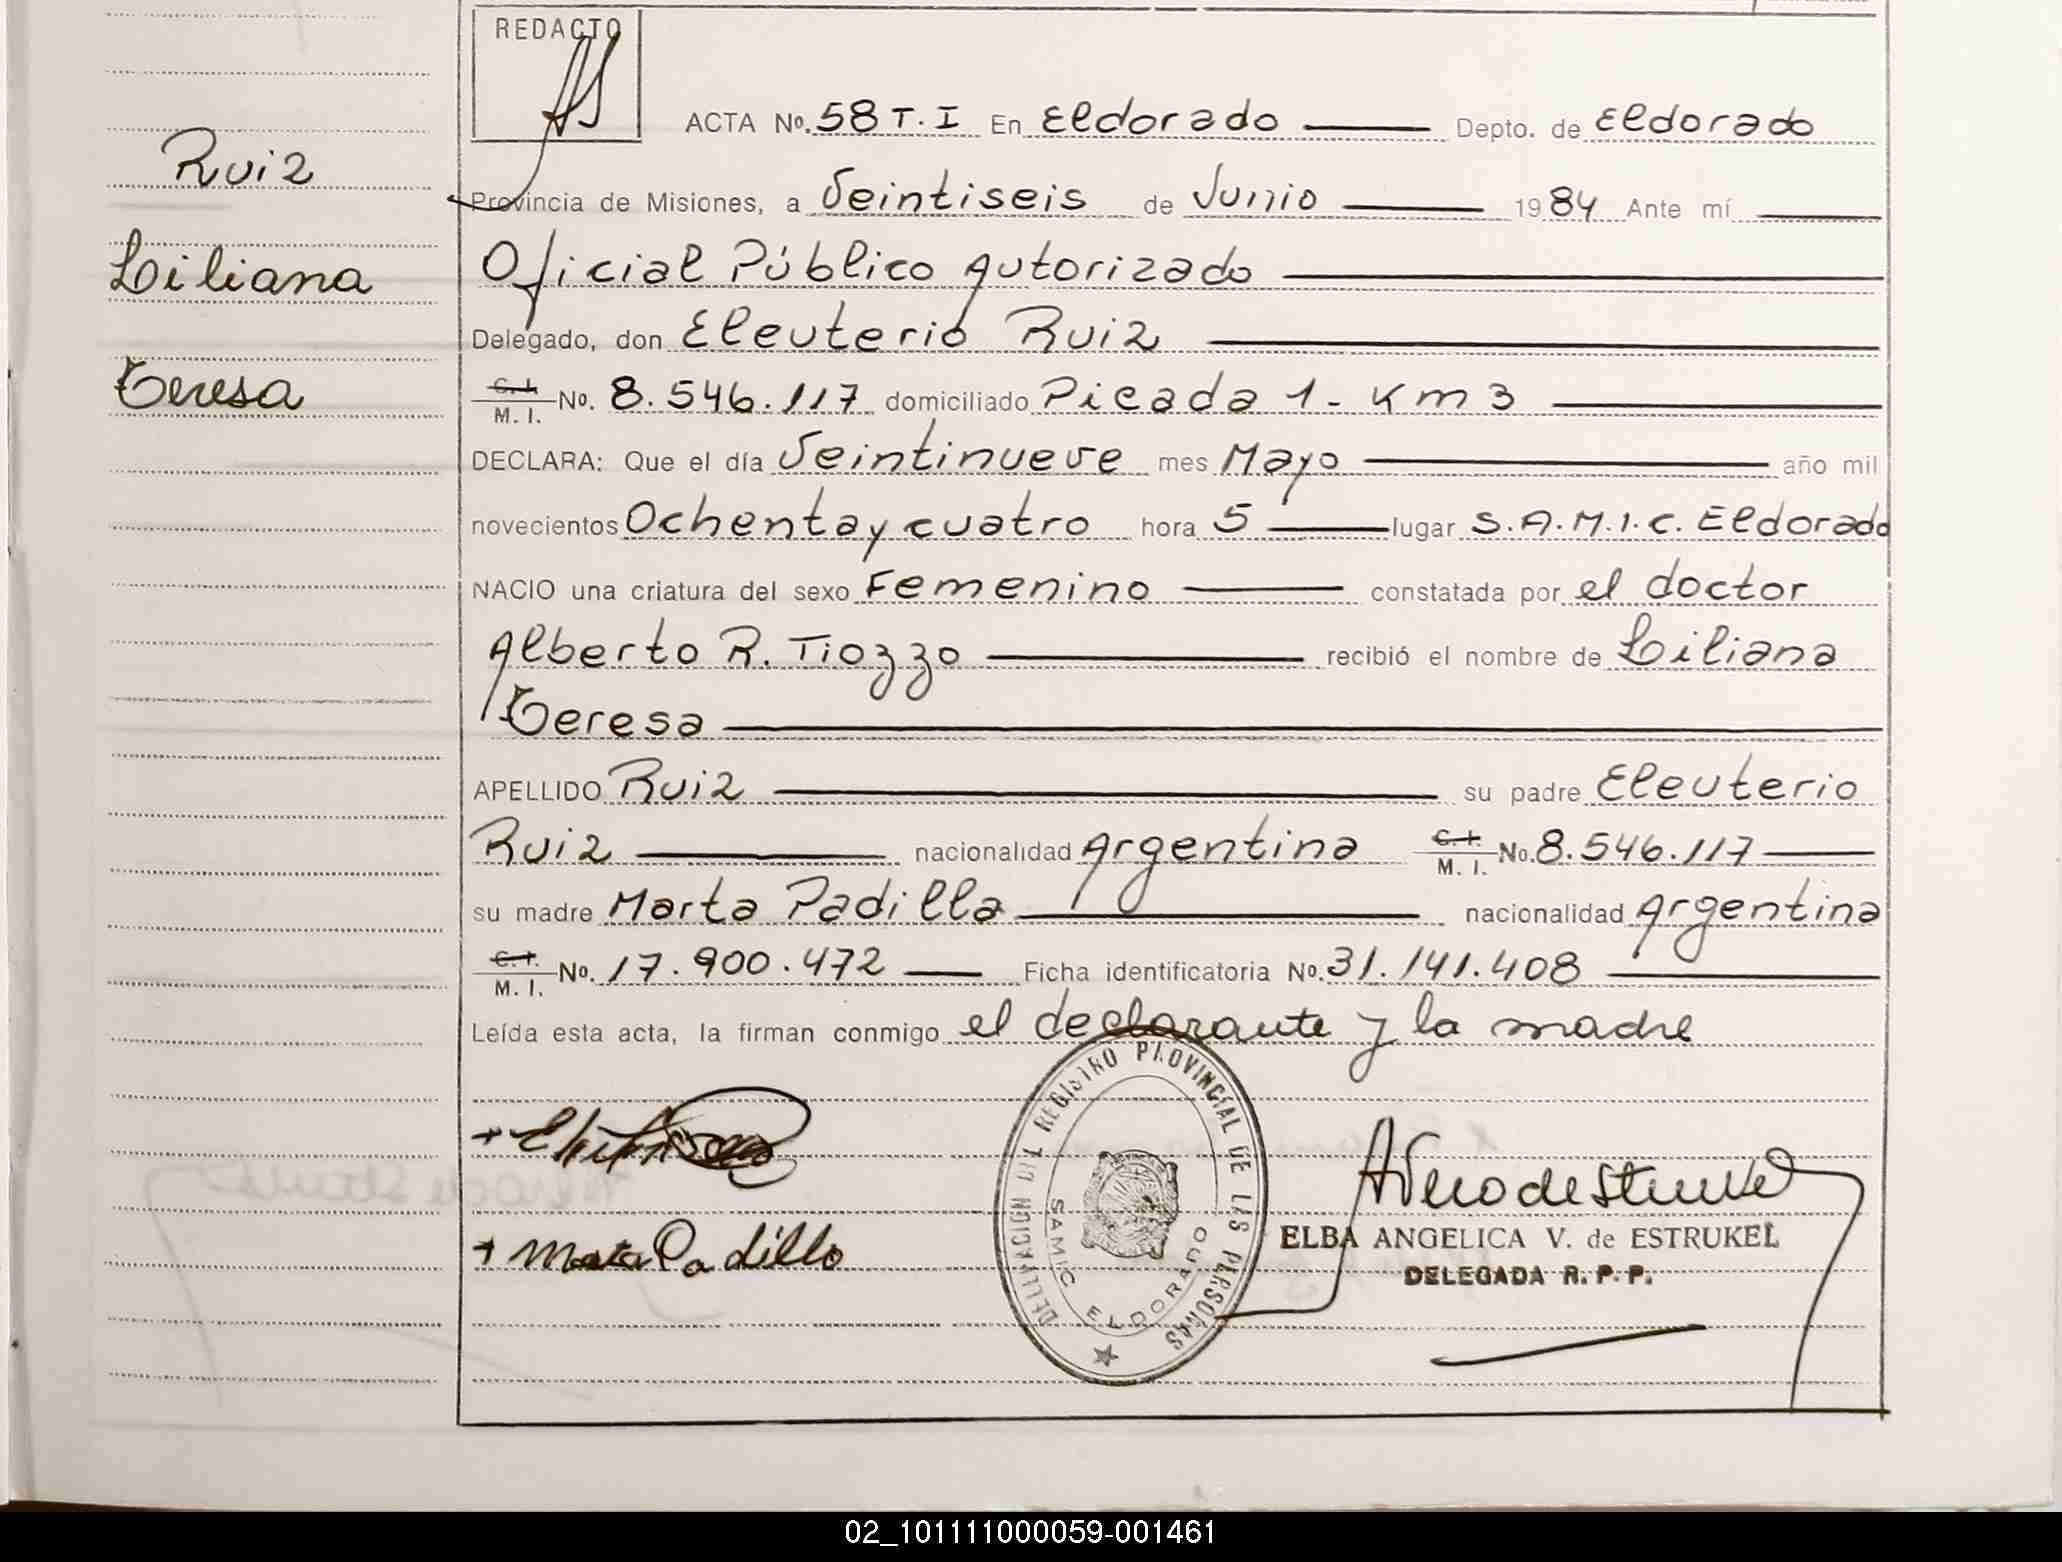 REDACTO
ACTA No. 58 T. I En Eldorado Depto. de Eldorado
Ruiz
Provincia de Misiones, a Veintiseis de Junio 1984 Ante mí
Liliana
Oficial Público Autorizado
Delegado, don Eleuterio Ruiz
Teresa
C. I. M. I. No. 8.546.117 domiciliado Picada 1 - Km 3
DECLARA: Que el día Veintinueve mes Mayo año mil
novecientos Ochenta y cuatro hora 5 lugar S.A.M.I.C. Eldorado
NACIO una criatura del sexo Femenino constatada por el doctor
Alberto R. Tiozzo recibió el nombre de Liliana
Teresa
APELLIDO Ruiz su padre Eleuterio
Ruiz nacionalidad Argentina C. I. M. I. No. 8.546.117
su madre Marta Padilla nacionalidad Argentina
C. I. M. I. No. 17.900.472 Ficha identificatoria No. 31.141.408
Leída esta acta, la firman conmigo el declarante y la madre
DELEGACION DEL REGISTRO PROVINCIAL DE LAS PERSONAS
SAMIC ELDORADO
Marta Padilla
ELBA ANGELICA V. de ESTRUKEL
DELEGADA R. P. P.
02_101111000059-001461